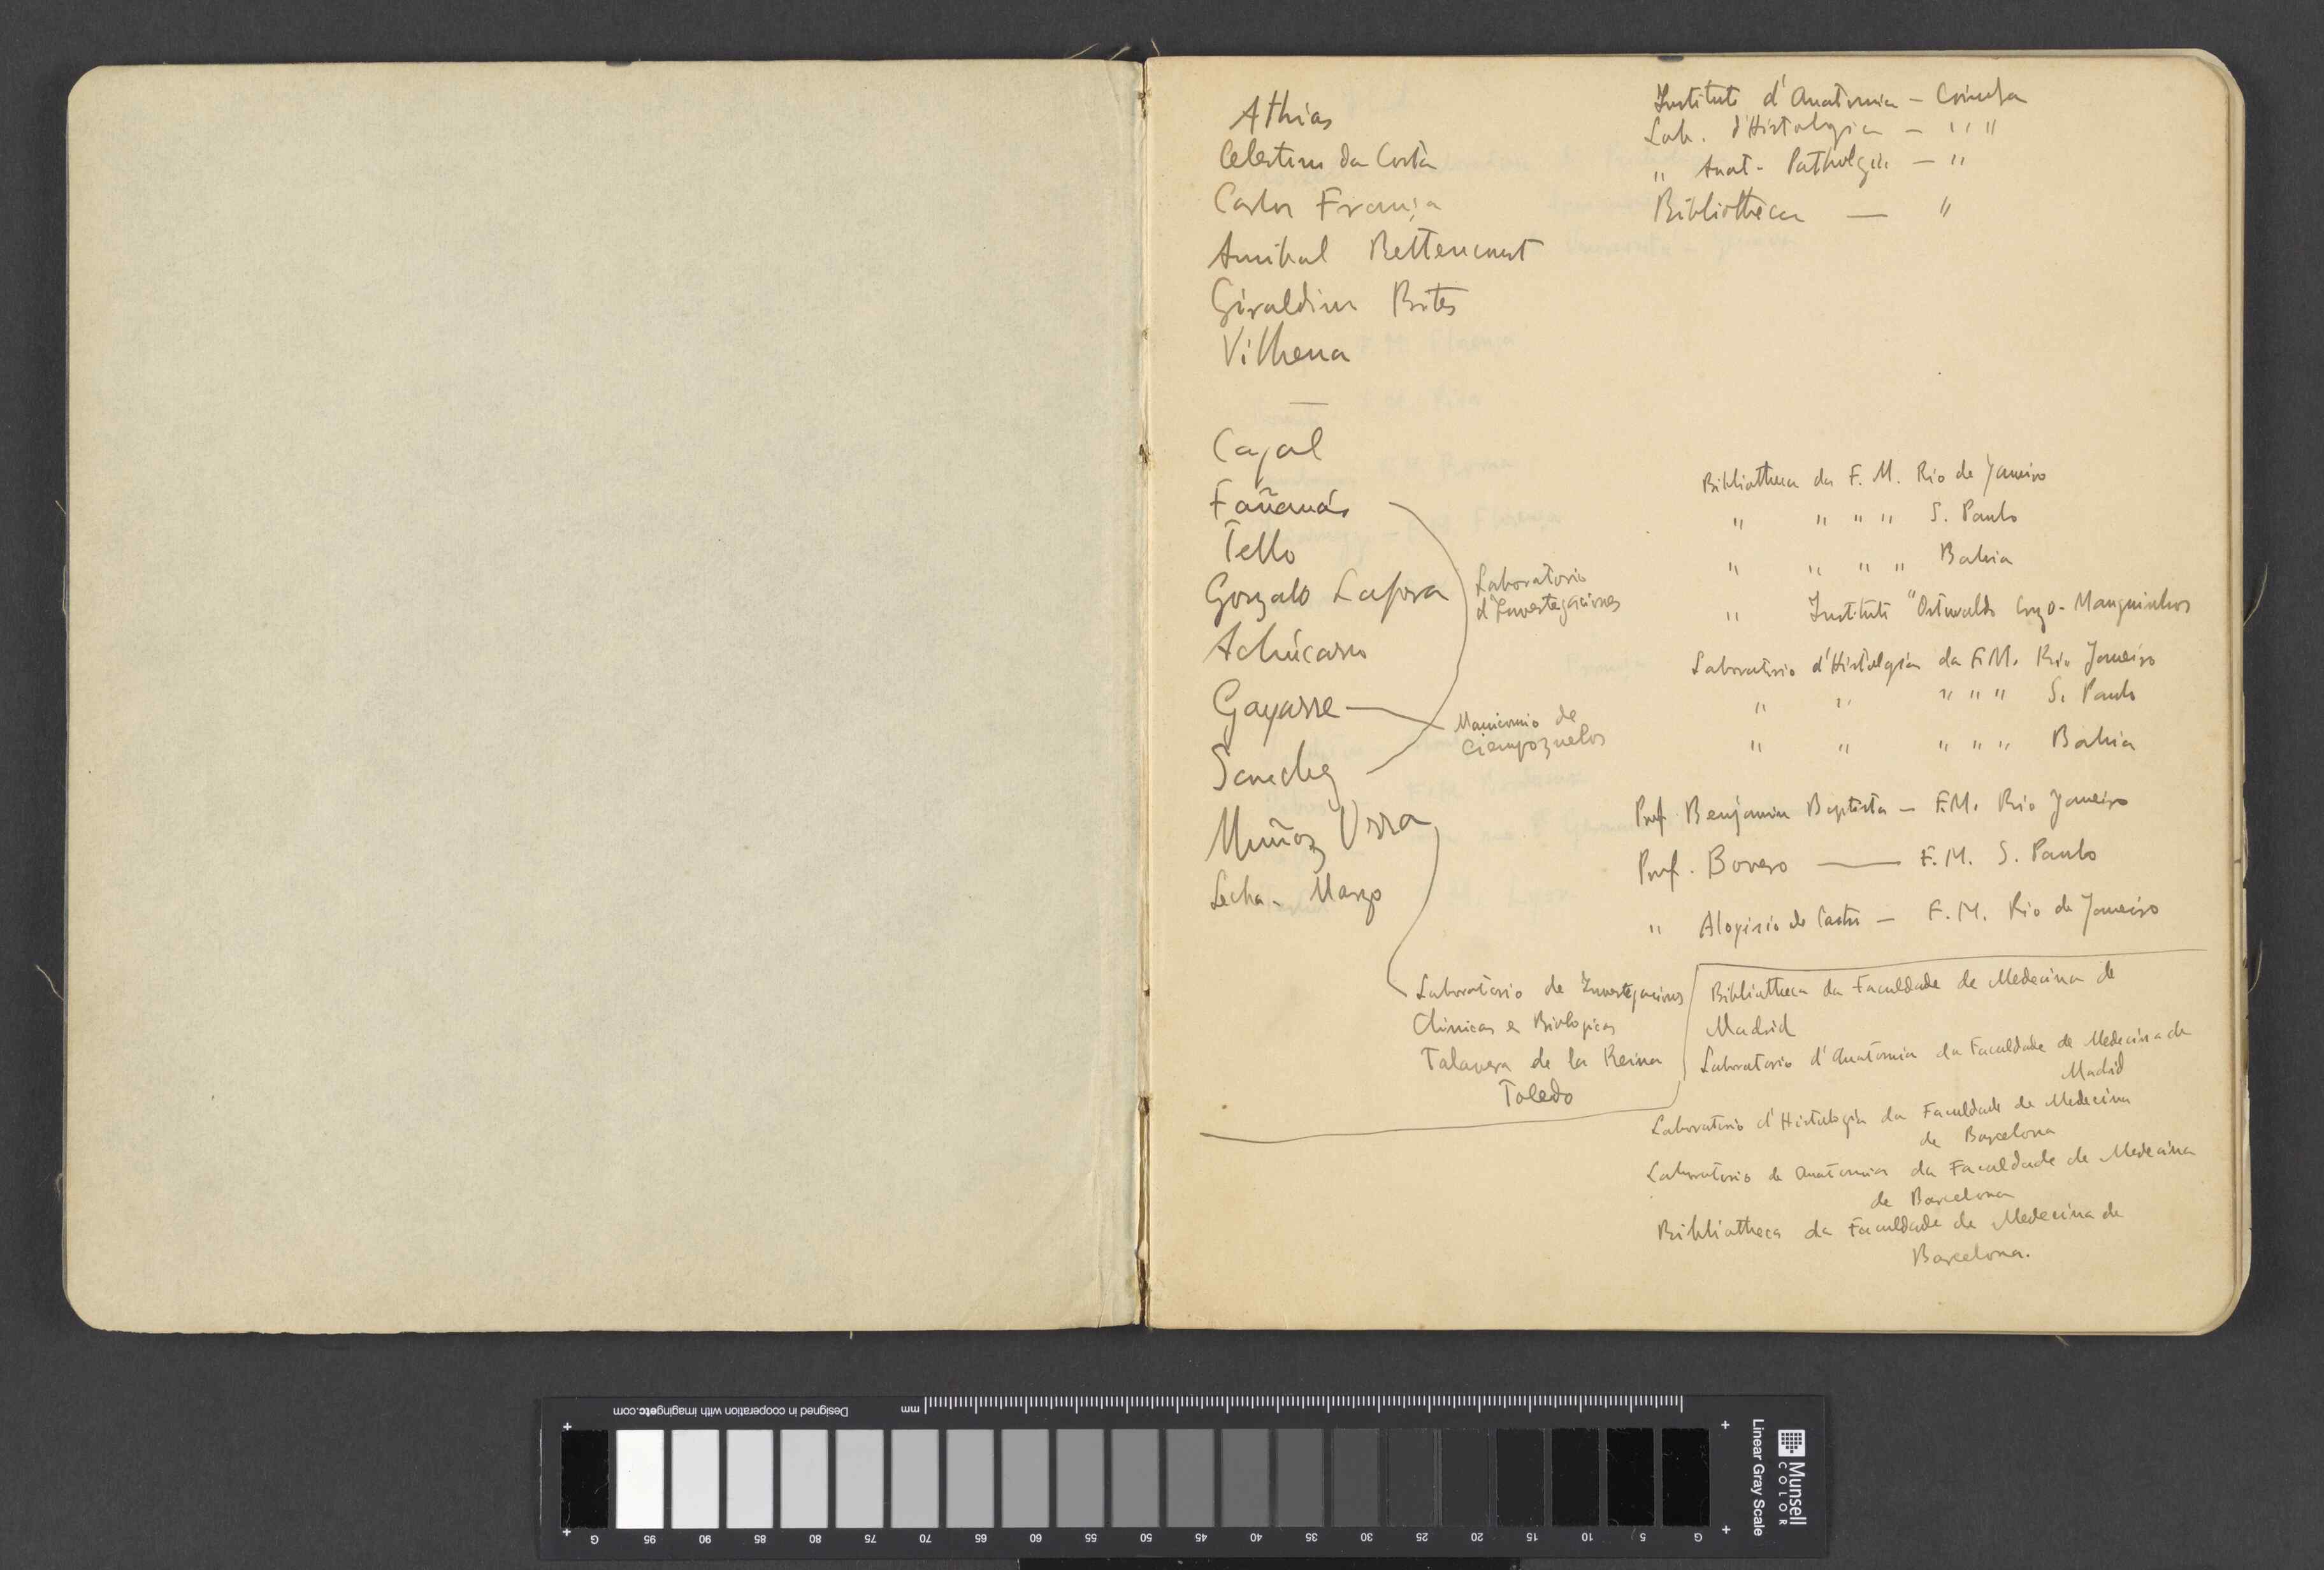 Athias
Celestino da Costa
Carlos França
Anibal Bettencourt
Giraldino Brites
Vilhena
—
Cajal
Fañanás
Tello
Gonzalo Lafora
Achúcarro
Gayarre
Sanchez
Muñoz Urra
Lecha-Marzo
Laboratorio
d'Investegaciones
Manicomio de
Ciempozuelos
Laboratorio de Investegaciones
Clinicas e Biologicas
Talavera de la Reina
Toledo
Instituto d'Anatomia — Coimbra
Lab. d'Histologia — " "
" Anat- Pathologia — "
Bibliotheca — "
Bibliotheca da F. M. Rio de Janeiro
" " " " S. Paulo
" " " " Bahia
" Instituto "Ostwaldo Cruz- Manguinhos
Laboratorio d'Histologia da F.M. Rio Janeiro
" " " " " S. Paulo
" " " " " Bahia
Prof. Benjamin Baptista — F.M. Rio Janeiro
Prof. Bovero — F.M. S. Paulo
" Aloysio de Castro — F.M. Rio de Janeiro
Bibliotheca da Faculdade de Medecina de
Madrid
Laboratorio d'Anatomia da Faculdade de Medecina de
Madrid
Laboratorio d'Histologia da Faculdade de Medecina
de Barcelona
Laboratorio de Anatomia da Faculdade de Medecina
de Barcelona
Bibliotheca da Faculdade de Medecina de
Barcelona.
Designed in cooperation with imagingetc.com
mm
G 95 90 85 80 75 70 65 60 55 50 45 40 35 30 25 20 15 10 5 G
Linear Gray Scale
Munsell
COLOR